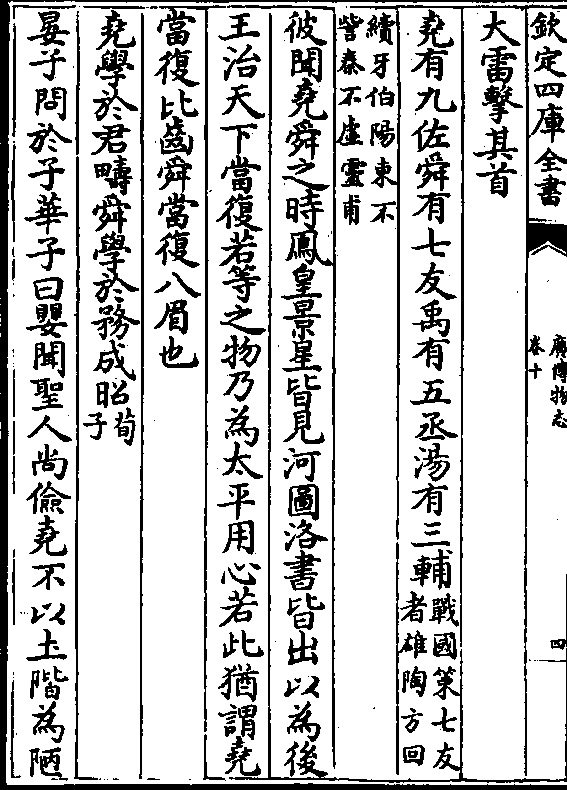 欽定四庫全書
廣博物志
卷十
四
大雷擊其首
堯有九佐舜有七友禹有五丞湯有三輔戰國策七友
者雄陶方回
續牙伯陽東不
訾秦不虛靈甫
彼聞堯舜之時鳳皇景星皆見河圖洛書皆出以為後
王治天下當復若等之物乃為太平用心若此猶謂堯
當復比齒舜當復八眉也
堯學於君疇舜學於務成昭荀
子
晏子問於子華子曰嬰聞聖人尚儉堯不以土階為陋